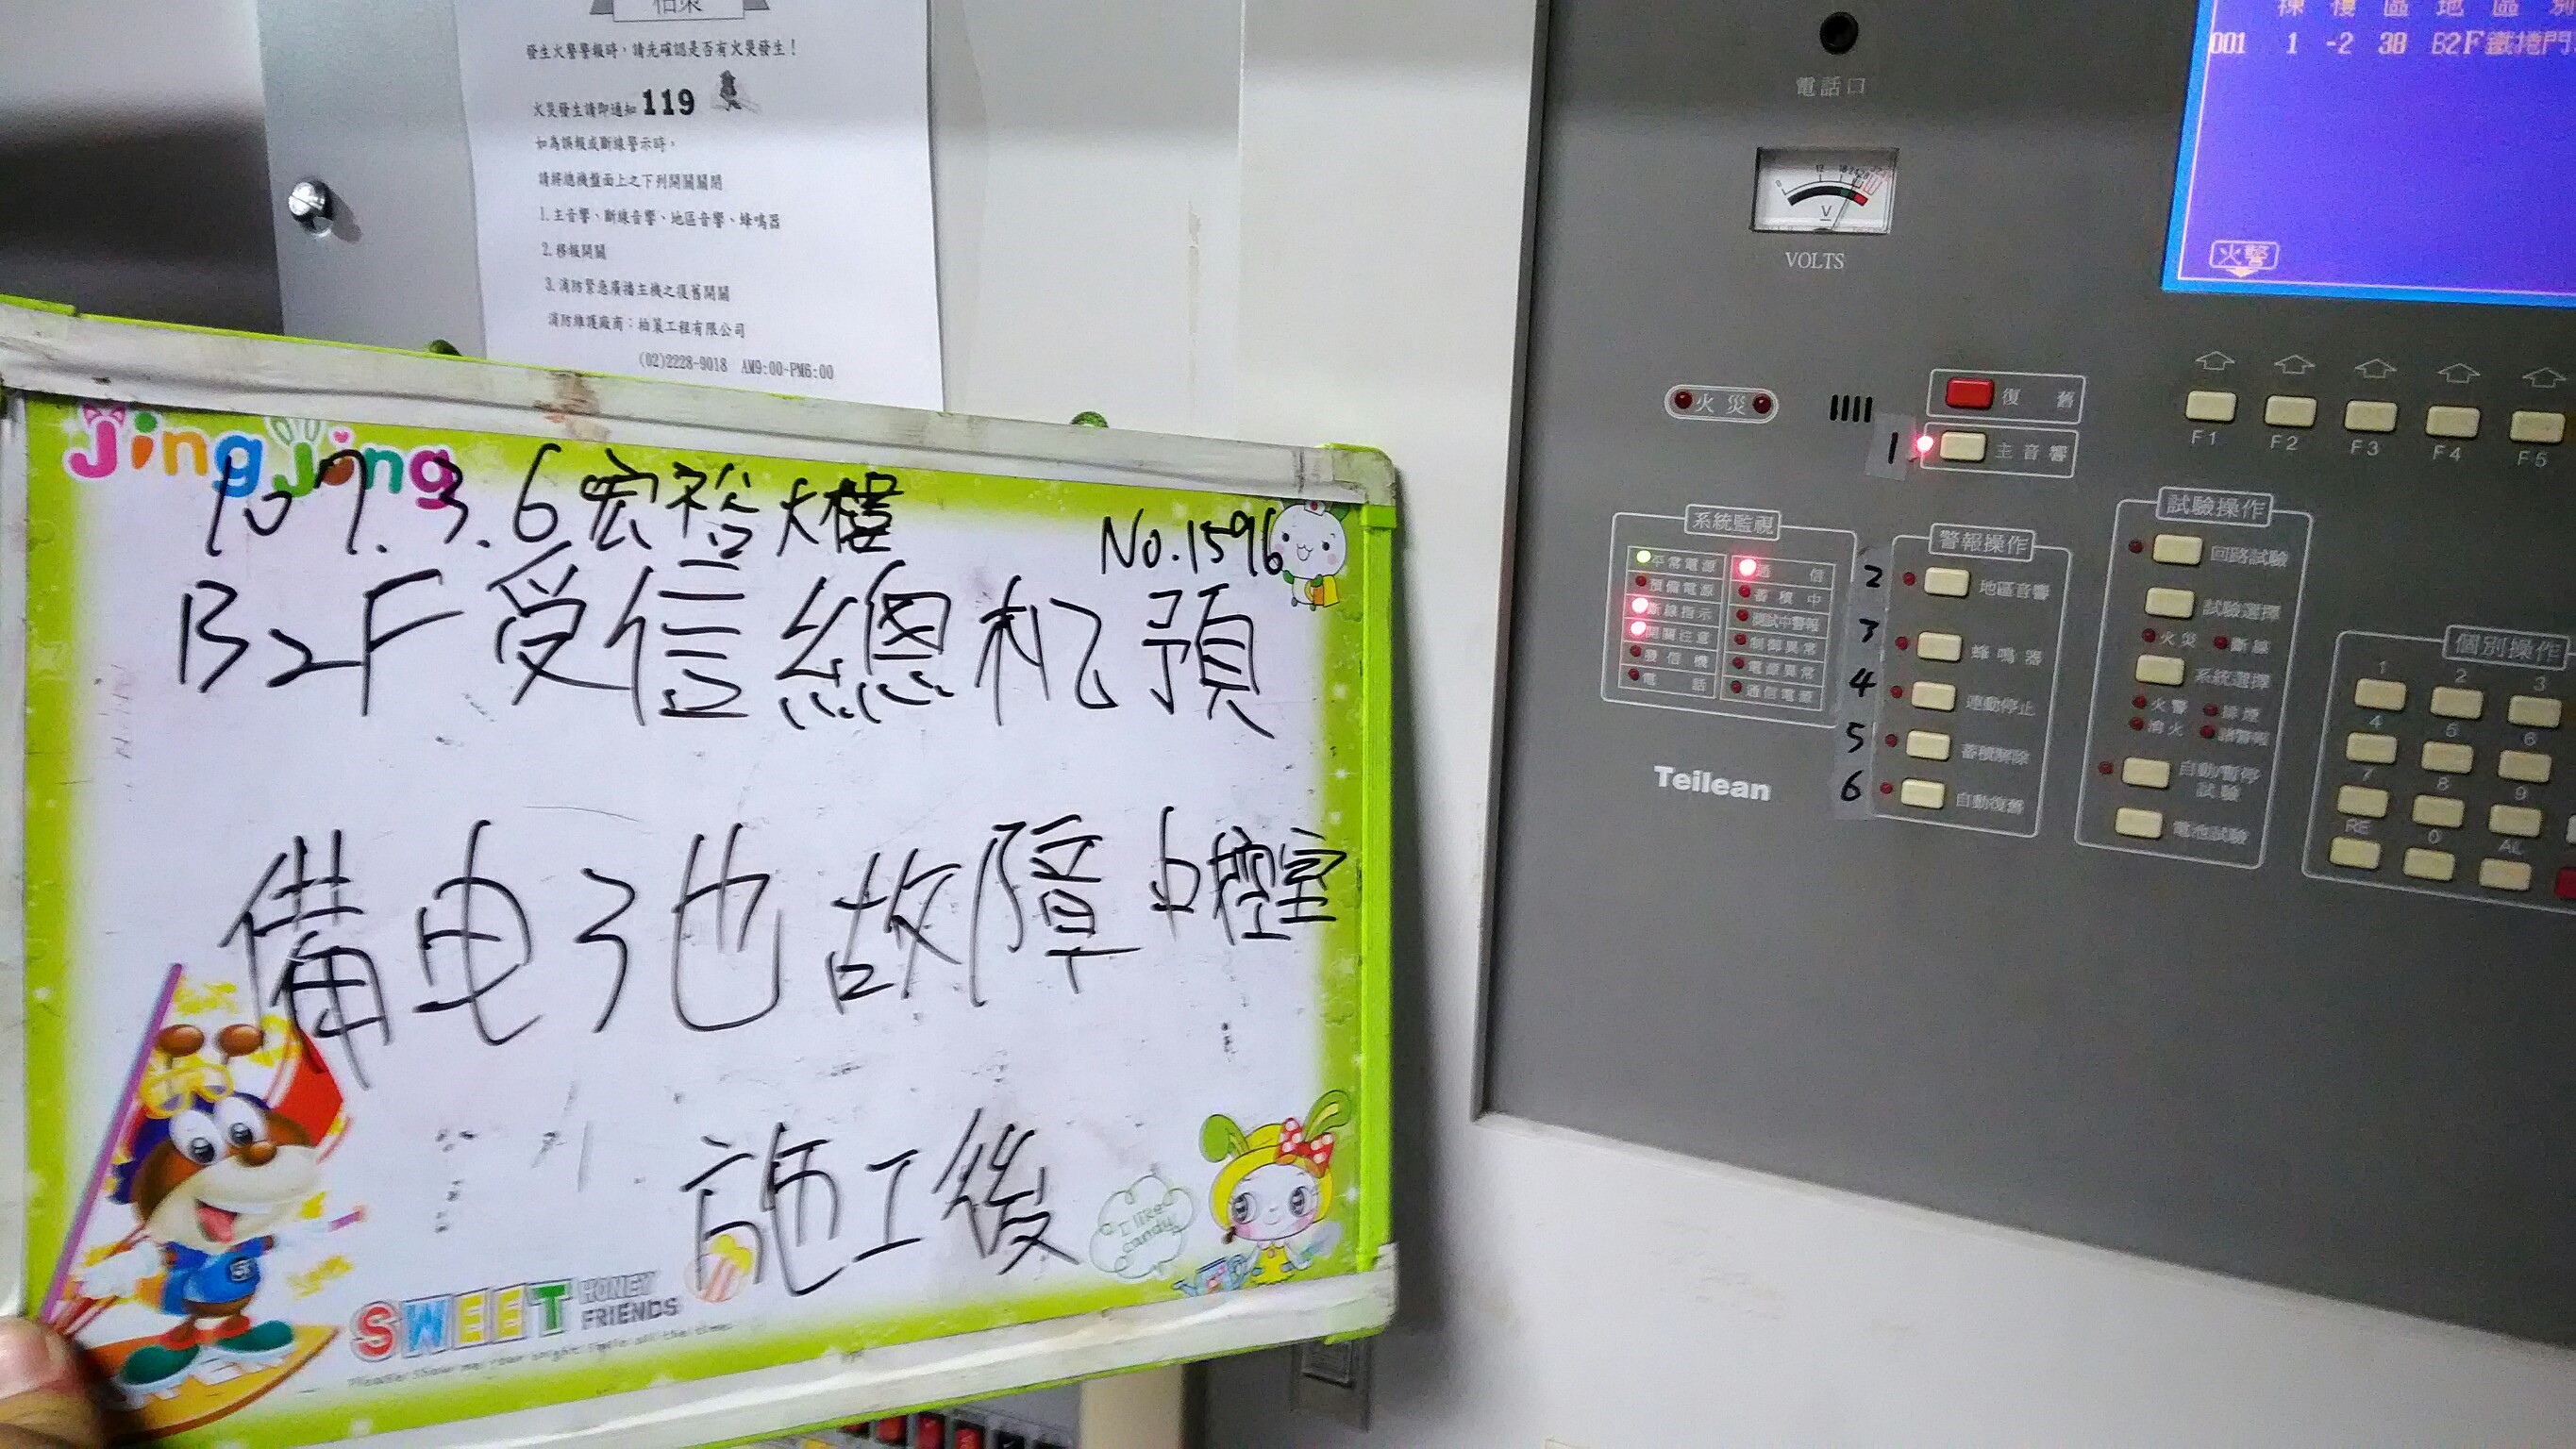 發生火警警報時，請先確認是否有火災發生！
火災發生請即通知 119
如為誤報或斷線警示時，
請將總機盤面上之下列開關關閉
1.主音響、斷線音響、地區音響、蜂鳴器
2.移報開關
3.消防緊急廣播主機之復舊開關
消防維護廠商：柏策工程有限公司
(02)2228-9018 AM9:00-PM6:00
Jing jong
107.3.6宏裕大樓
No.1596
B2F受信總机預
備电池故障 中控室
施工後
I liked candy
SWEET HONEY FRIENDS
電話口
V
VOLTS
棟 樓 區 地 區 別
001 1 -2 38 B2F鐵捲門
火警
火災
復舊
1 主音響
F1 F2 F3 F4 F5
系統監視
平常電源 通信
預備電源 蓄積中
斷線指示 測試中警報
開關注意 制御異常
發信機 電源異常
電話 通信電源
Teilean
警報操作
2 地區音響
3 蜂鳴器
4 連動停止
5 蓄積解除
6 自動復舊
試驗操作
回路試驗
試驗選擇
火災 斷線
系統選擇
火警 排煙
消火 諸警報
自動/暫停試驗
電池試驗
個別操作
1 2 3
4 5 6
7 8 9
RE 0 AL